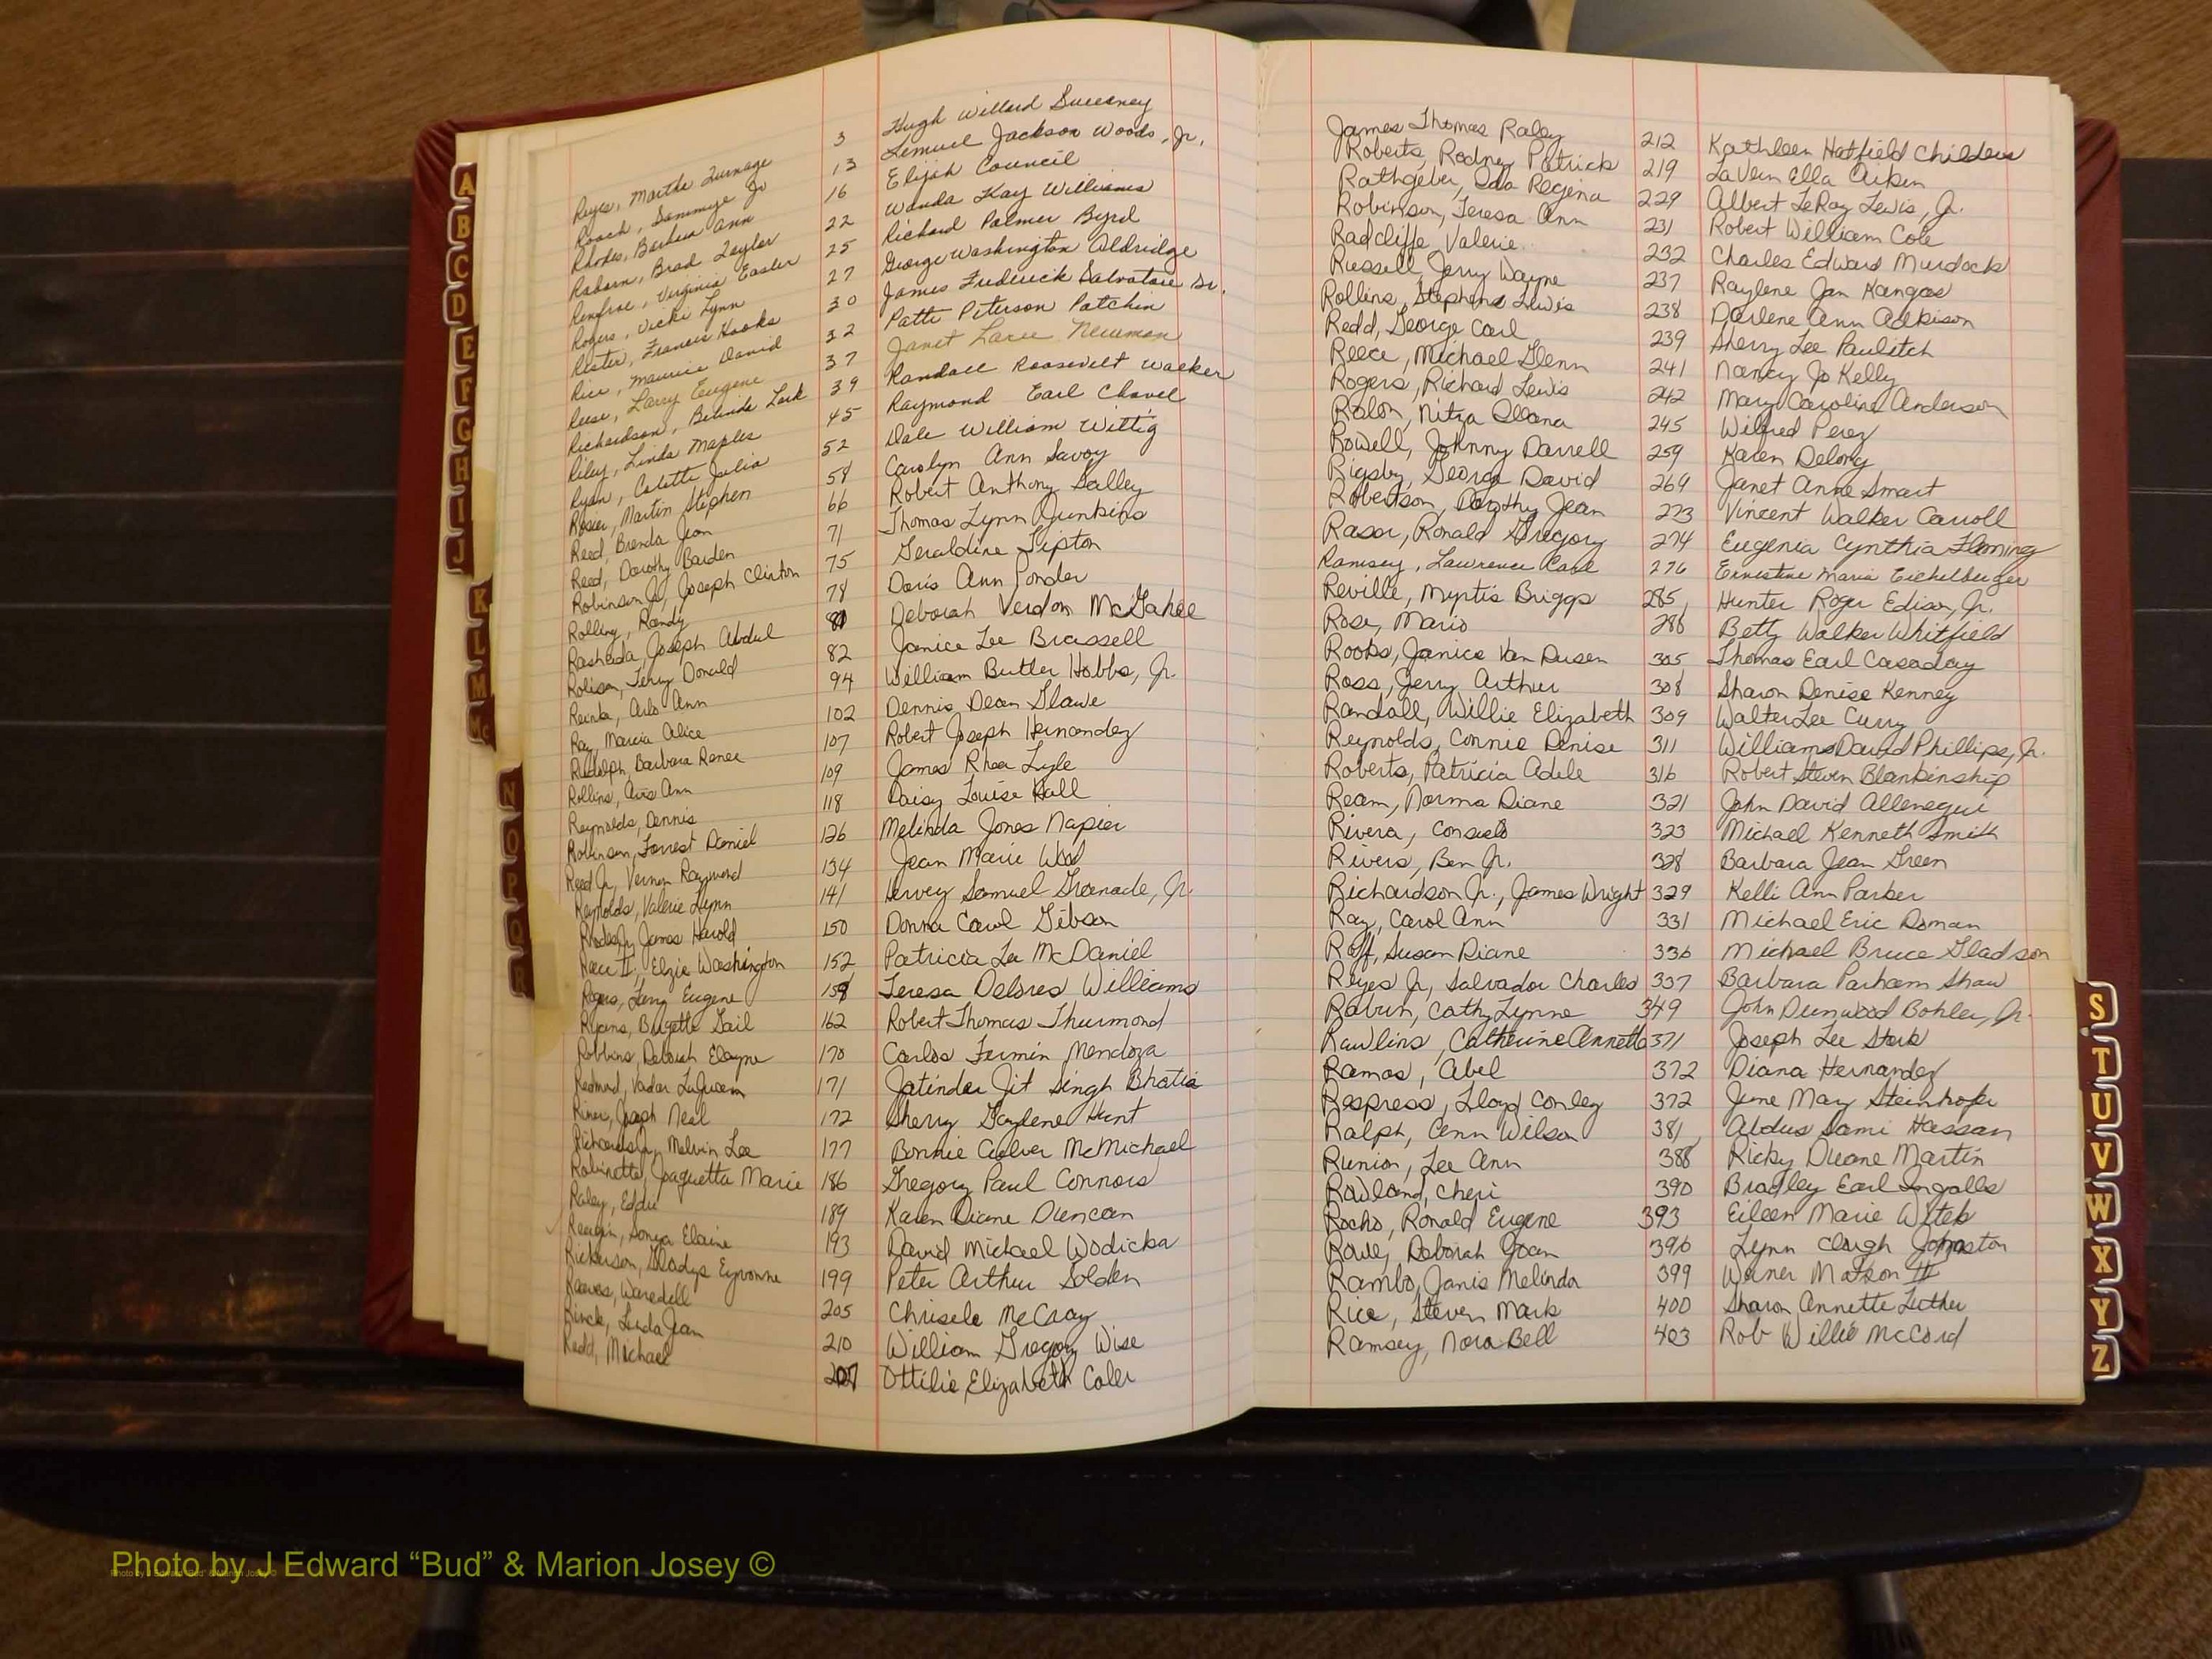 Reyes, Martha Turnage 3 Hugh Willard Sweeney
Roach, Sammye Jo 13 Lemuel Jackson Woods, Jr.
Rhodes, Barbara Ann 16 Elijah Council
Raborn, Brad Taylor 22 Wanda Kay Williams
Renfroe, Virginia Easler 25 Richard Palmer Byrd
Rogers, Vicki Lynn 27 George Washington Aldridge
Rister, Francis Hooks 30 James Frederick Salvatore Sr.
Rice, Maurice David 32 Patti Peterson Patchin
Reese, Larry Eugene 37 Janet Laree Newman
Richardson, Belinda Lark 39 Randall Roosevelt Walker
Riley, Linda Maples 45 Raymond Earl Chavel
Ryan, Colette Julia 52 Dale William Wittig
Rosier, Martin Stephen 58 Carolyn Ann Savoy
Reed, Brenda Jean 66 Robert Anthony Salley
Reed, Dorothy Barden 71 Thomas Lynn Junkins
Robinson Jr, Joseph Clinton 75 Geraldine Tipton
Rolling, Randy 78 Doris Ann Ponder
Rasheida, Joseph Abdul Deborah Verdon McGahee
Robison, Terry Donald 82 Janice Lee Brassell
Reinka, Arlo Ann 94 William Butler Hobbs, Jr.
Ray, Marcia Alice 102 Dennis Dean Glawe
Rudolph, Barbara Renee 107 Robert Joseph Hernandez
Rollins, Avis Ann 109 James Rhea Lyle
Reynolds, Dennis 118 Daisy Louise Hall
Robinson, Forrest Daniel 126 Melinda Jones Napier
Reed Jr, Vernon Raymond 134 Jean Marie Wood
Reynolds, Valerie Lynn 141 Hervey Samuel Granade, Jr.
Rhodes Jr, James Harold 150 Donna Carol Gibson
Race II, Elzie Washington 152 Patricia Lee McDaniel
Rogers, Larry Eugene 159 Teresa Delores Williams
Ryans, Brigette Gail 162 Robert Thomas Thurmond
Robbins, Deborah Elayne 170 Carlos Fermin Mendoza
Redmond, Vadar 171 Jatinder Jit Singh Bhatia
Riner, Joseph Neal 172 Sherry Gaylene Hunt
Richardson, Melvin Lee 177 Bonnie Culver McMichael
Robinette, Joaquetta Marie 186 Gregory Paul Connors
Raley, Eddie 189 Karen Diane Duncan
Reagin, Sonya Elaine 193 David Michael Wodicka
Rickerson, Gladys Eyvonne 199 Peter Arthur Solden
Reeves, Waredell 205 Chrisele McCray
Rinck, Linda Jean 210 William Gregory Wise
Redd, Michael 207 Ottilie Elizabeth Coler
James Thomas Raley 212 Kathleen Hatfield Childers
Roberts, Rodney Patrick 219 LaVern Ella Aiken
Rathgeber, Ida Regina 229 Albert LeRoy Lewis, Jr.
Robinson, Teresa Ann 231 Robert William Cole
Radcliffe, Valerie 232 Charles Edward Murdock
Russell, Jerry Wayne 237 Raylene Jan Kangas
Rollins, Stephens Lewis 238 Darlene Ann Adkison
Redd, George Carl 239 Sherry Lee Paulitch
Reece, Michael Glenn 241 Nancy Jo Kelly
Rogers, Richard Lewis 242 Mary Caroline Anderson
Rolon, Nitza Illana 245 Wilfred Perez
Rowell, Johnny Darrell 259 Karen Delong
Rigsby, George David 264 Janet Anne Smart
Robertson, Dorothy Jean 273 Vincent Walker Carroll
Rasor, Ronald Gregory 274 Eugenia Cynthia Fleming
Ramsey, Lawrence Carl 276 Ernestine Maria Eichelberger
Reville, Myrtis Briggs 285 Hunter Roger Edison, Jr.
Rose, Mario 286 Betty Walker Whitfield
Rooks, Janice Van Dusen 305 Thomas Earl Casaday
Ross, Jerry Arthur 308 Sharon Denise Kenney
Randall, Willie Elizabeth 309 Walter Lee Curry
Reynolds, Connie Denise 311 Williams David Phillips, Jr.
Roberts, Patricia Adele 316 Robert Steven Blankinship
Ream, Norma Diane 321 John David Allenegui
Rivera, Consuelo 323 Michael Kenneth Smith
Rivers, Ben Jr. 328 Barbara Jean Green
Richardson Jr., James Wright 329 Kelli Ann Parker
Ray, Carol Ann 331 Michael Eric Doman
Roff, Susan Diane 336 Michael Bruce Gladson
Reyes Jr, Salvador Charles 337 Barbara Parham Shaw
Raburn, Cathy Lynne 349 John Dunwood Bohler, Jr.
Rawlins, Catherine Annette 371 Joseph Lee Stark
Ramos, Abel 372 Diana Hernandez
Respress, Lloyd Conley 372 June May Steinhofer
Ralph, Ann Wilson 381 Abdus Sami Hassan
Runion, Lee Ann 388 Ricky Duane Martin
Rowland, Cheri 390 Bradley Earl Ingalls
Rocho, Ronald Eugene 393 Eileen Marie Witek
Rowe, Deborah Joan 396 Lynn Clough Johnston
Rambo, Janis Melinda 399 Warner Matson III
Rice, Steven Mark 400 Sharon Annette Luther
Ramsey, Nora Bell 403 Rob Willie McCord
A
B
C
D
E
F
G
H
I
J
K
L
M
Mc
N
O
P
Q
R
S
T
U
V
W
X
Y
Z
Photo by J Edward “Bud” & Marion Josey ©